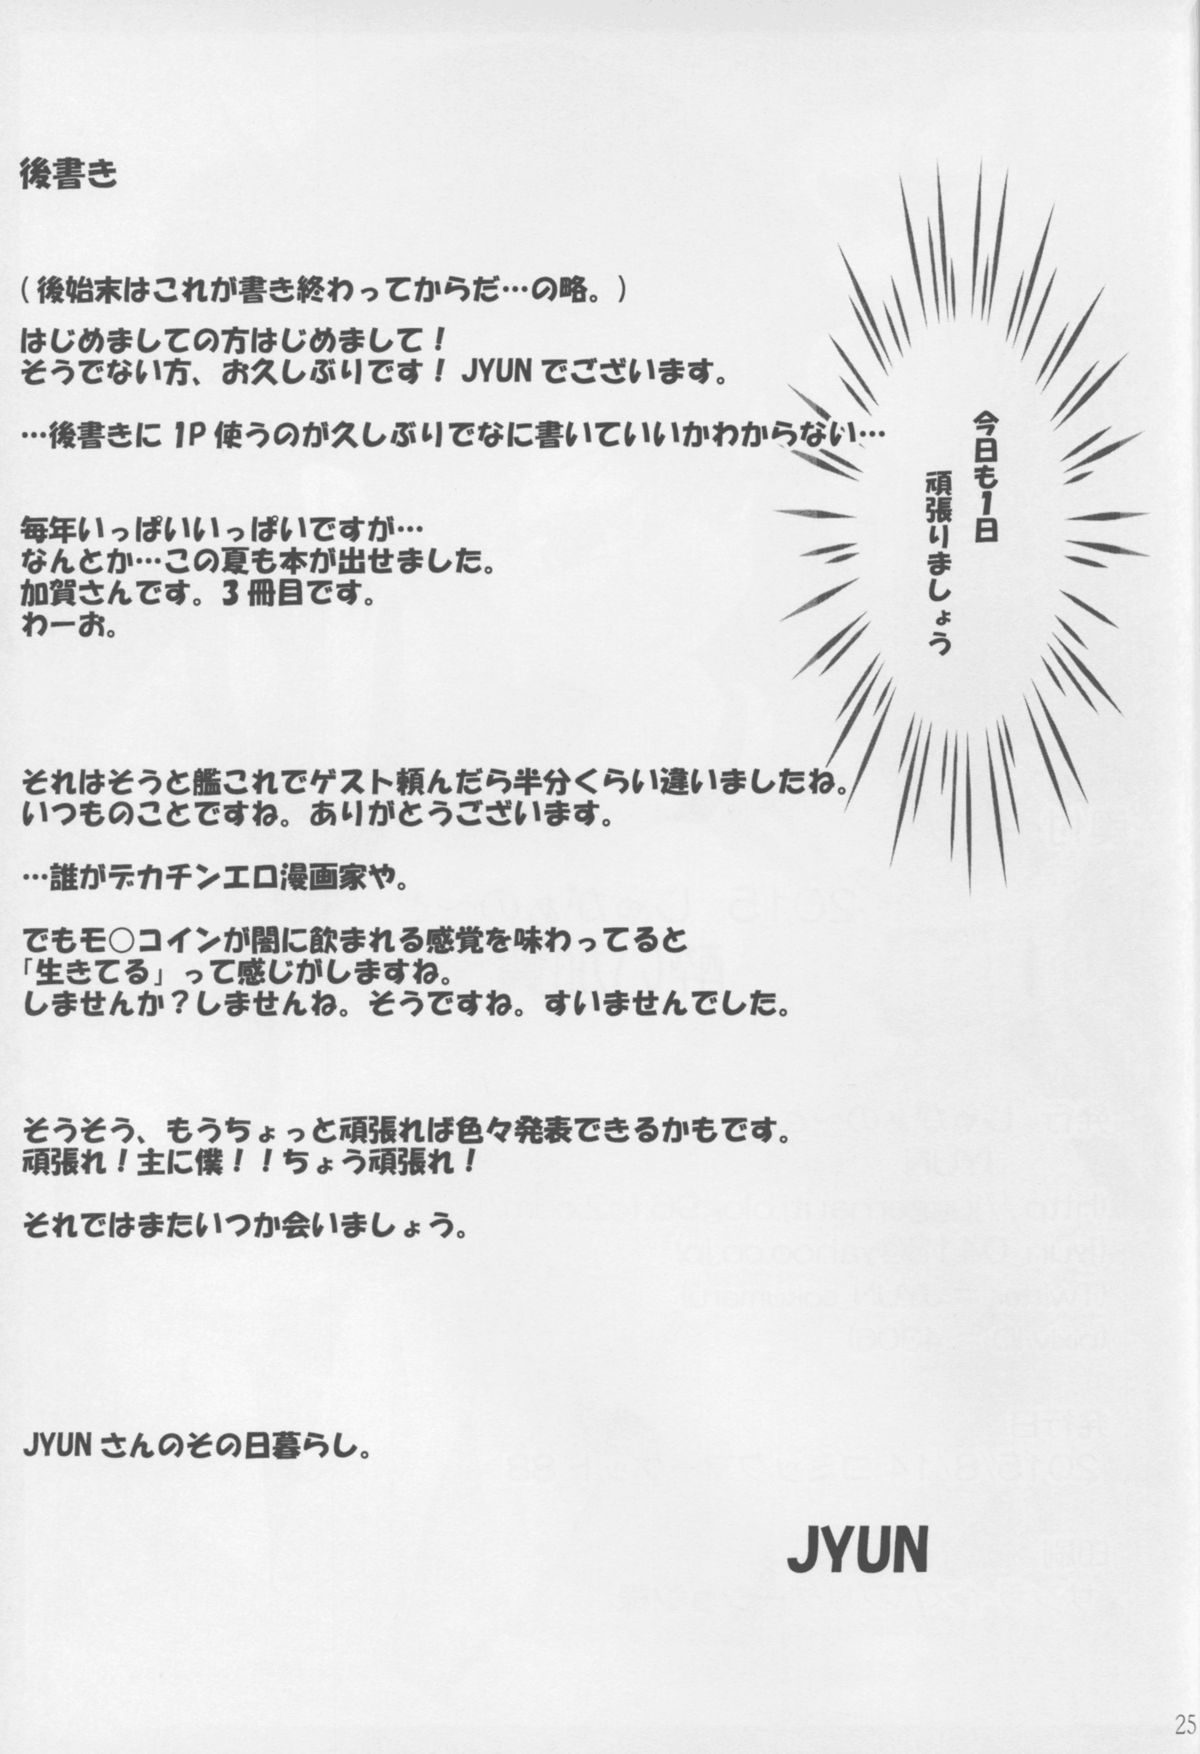 後書き
(後始末はこれが書き終わってからだ…の略。)
はじめましての方はじめまして!
そうでない方、お久しぶりです! JYUNでございます。
…後書きに1P使うのが久しぶりでなに書いていいかわからない…
今日も1日
頑張りましょう
毎年いっぱいいっぱいですが…
なんとか…この夏も本が出せました。
加賀さんです。3冊目です。
わーお。
それはそうと艦これでゲスト頼んだら半分くらい違いましたね。
いつものことですね。ありがとうございます。
…誰がデカチンエロ漫画家や。
でもモ○コインが闇に飲まれる感覚を味わってると
「生きてる」って感じがしますね。
しませんか?しませんね。そうですね。すいませんでした。
そうそう、もうちょっと頑張れば色々発表できるかもです。
頑張れ!主に僕!!ちょう頑張れ!
それではまたいつか会いましょう。
JYUNさんのその日暮らし。
JYUN
25